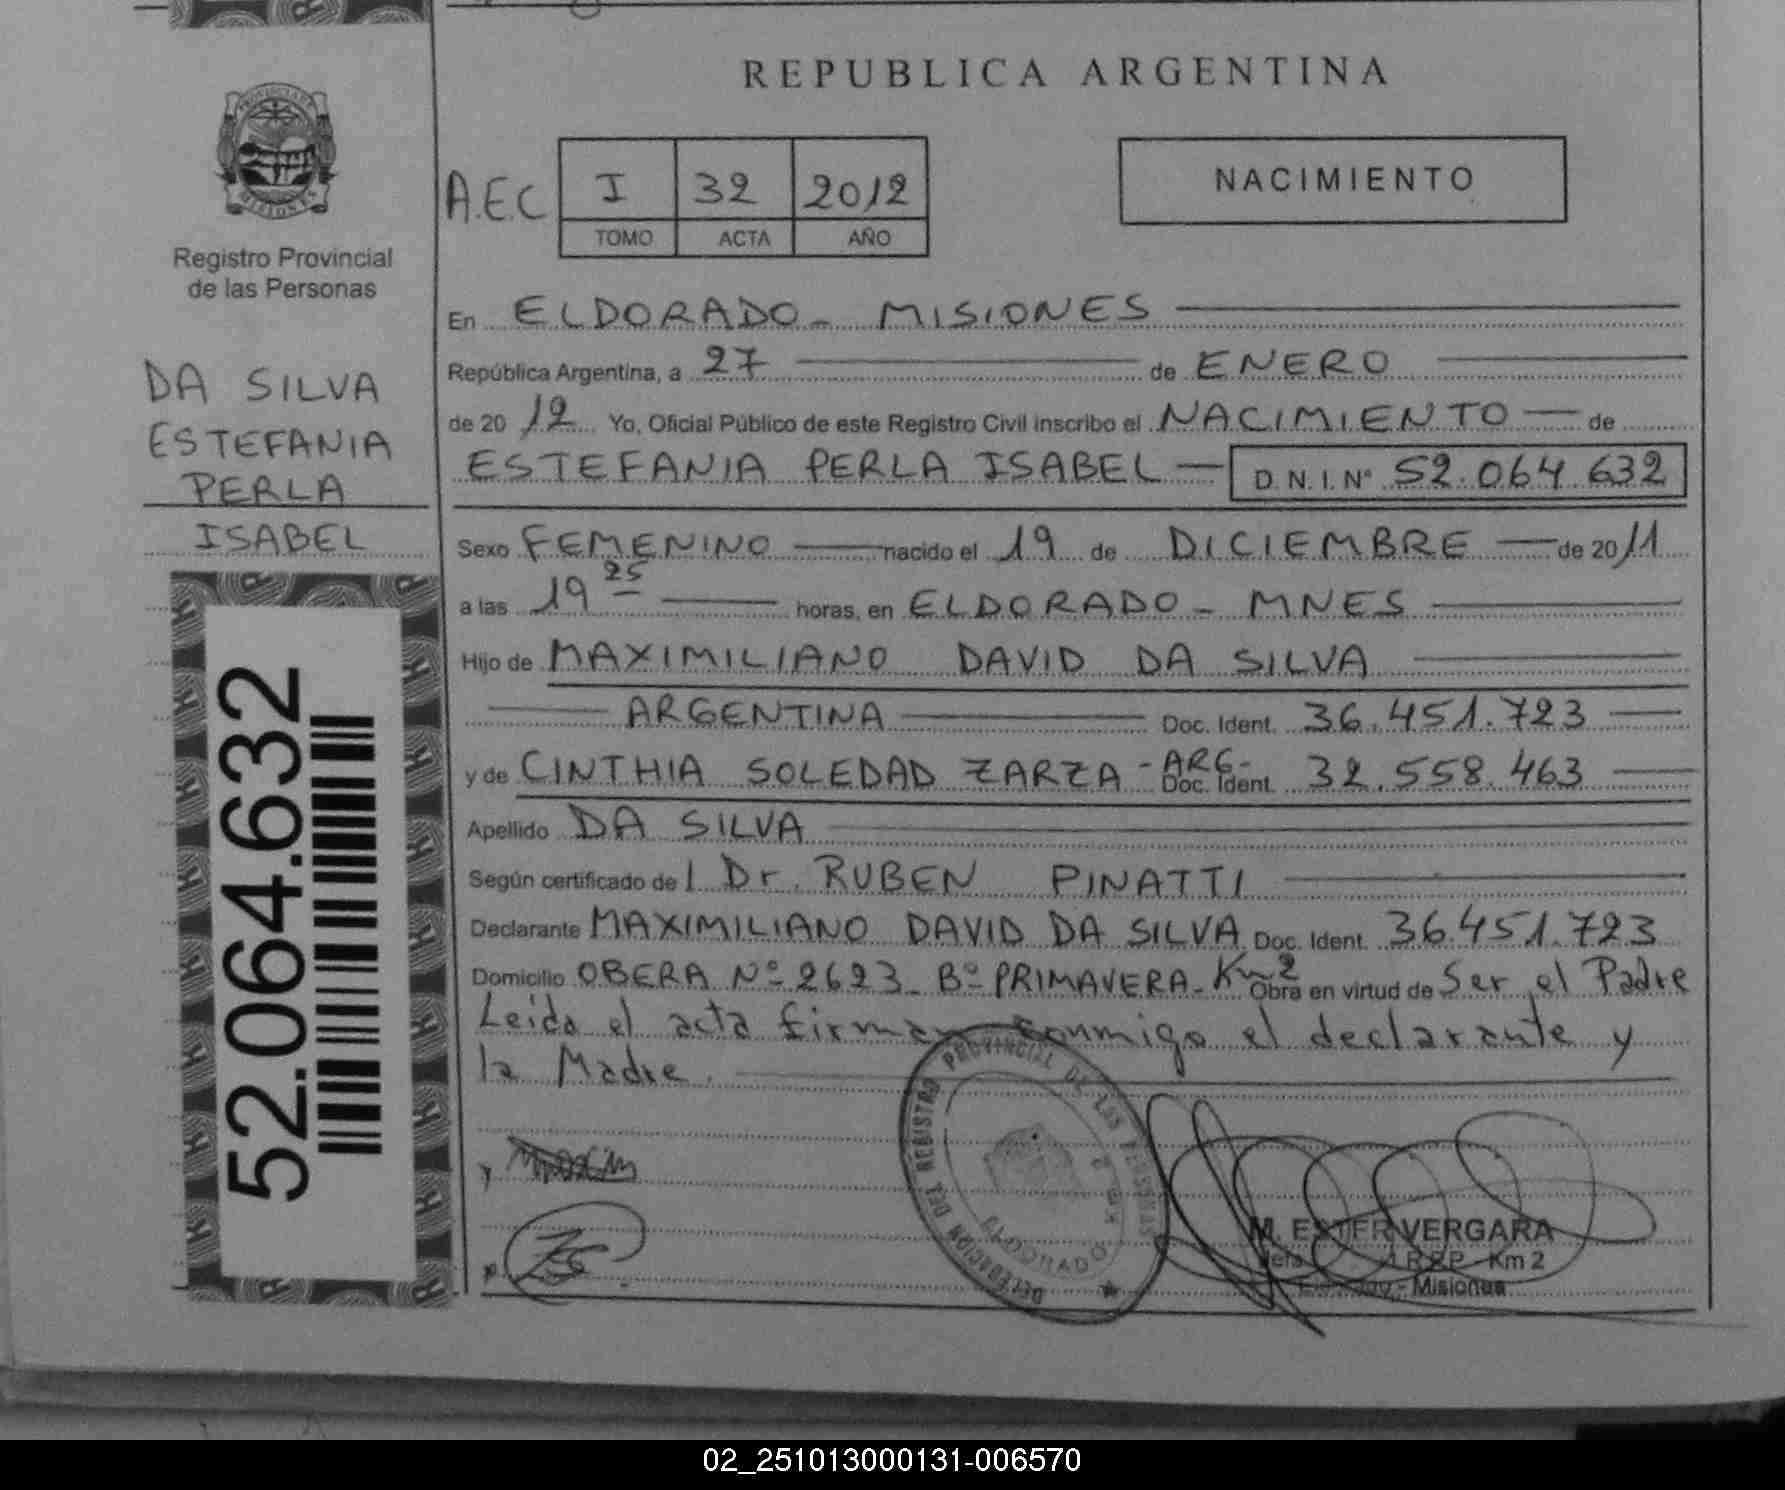 REPUBLICA ARGENTINA
PROVINCIA DE
MISIONES
Registro Provincial
de las Personas
A.E.C
I 32 2012
TOMO ACTA AÑO
NACIMIENTO
DA SILVA
ESTEFANIA
PERLA
ISABEL
52.064.632
En ELDORADO - MISIONES
República Argentina, a 27 de ENERO
de 20 12 Yo, Oficial Público de este Registro Civil inscribo el NACIMIENTO de
ESTEFANIA PERLA ISABEL D.N.I.Nº 52.064.632
Sexo FEMENINO nacido el 19 de DICIEMBRE de 20 11
a las 19 25 horas, en ELDORADO - MNES
Hijo de MAXIMILIANO DAVID DA SILVA
ARGENTINA Doc. Ident. 36.451.723
y de CINTHIA SOLEDAD ZARZA - ARG- Doc. Ident. 32.558.463
Apellido DA SILVA
Según certificado de l Dr. RUBEN PINATTI
Declarante MAXIMILIANO DAVID DA SILVA Doc. Ident. 36.451.723
Domicilio OBERA Nº 2623 - Bº PRIMAVERA - Km 2 Obra en virtud de Ser el Padre
Leida el acta firman conmigo el declarante y
la Madre.
DELEGACION DEL REGISTRO PROVINCIAL DE LAS PERSONAS
ELDORADO Km 2
M. ESTER VERGARA
Km 2
- Misiones
02_251013000131-006570